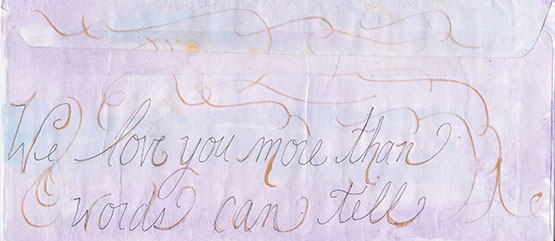 We love you more than
words can tell